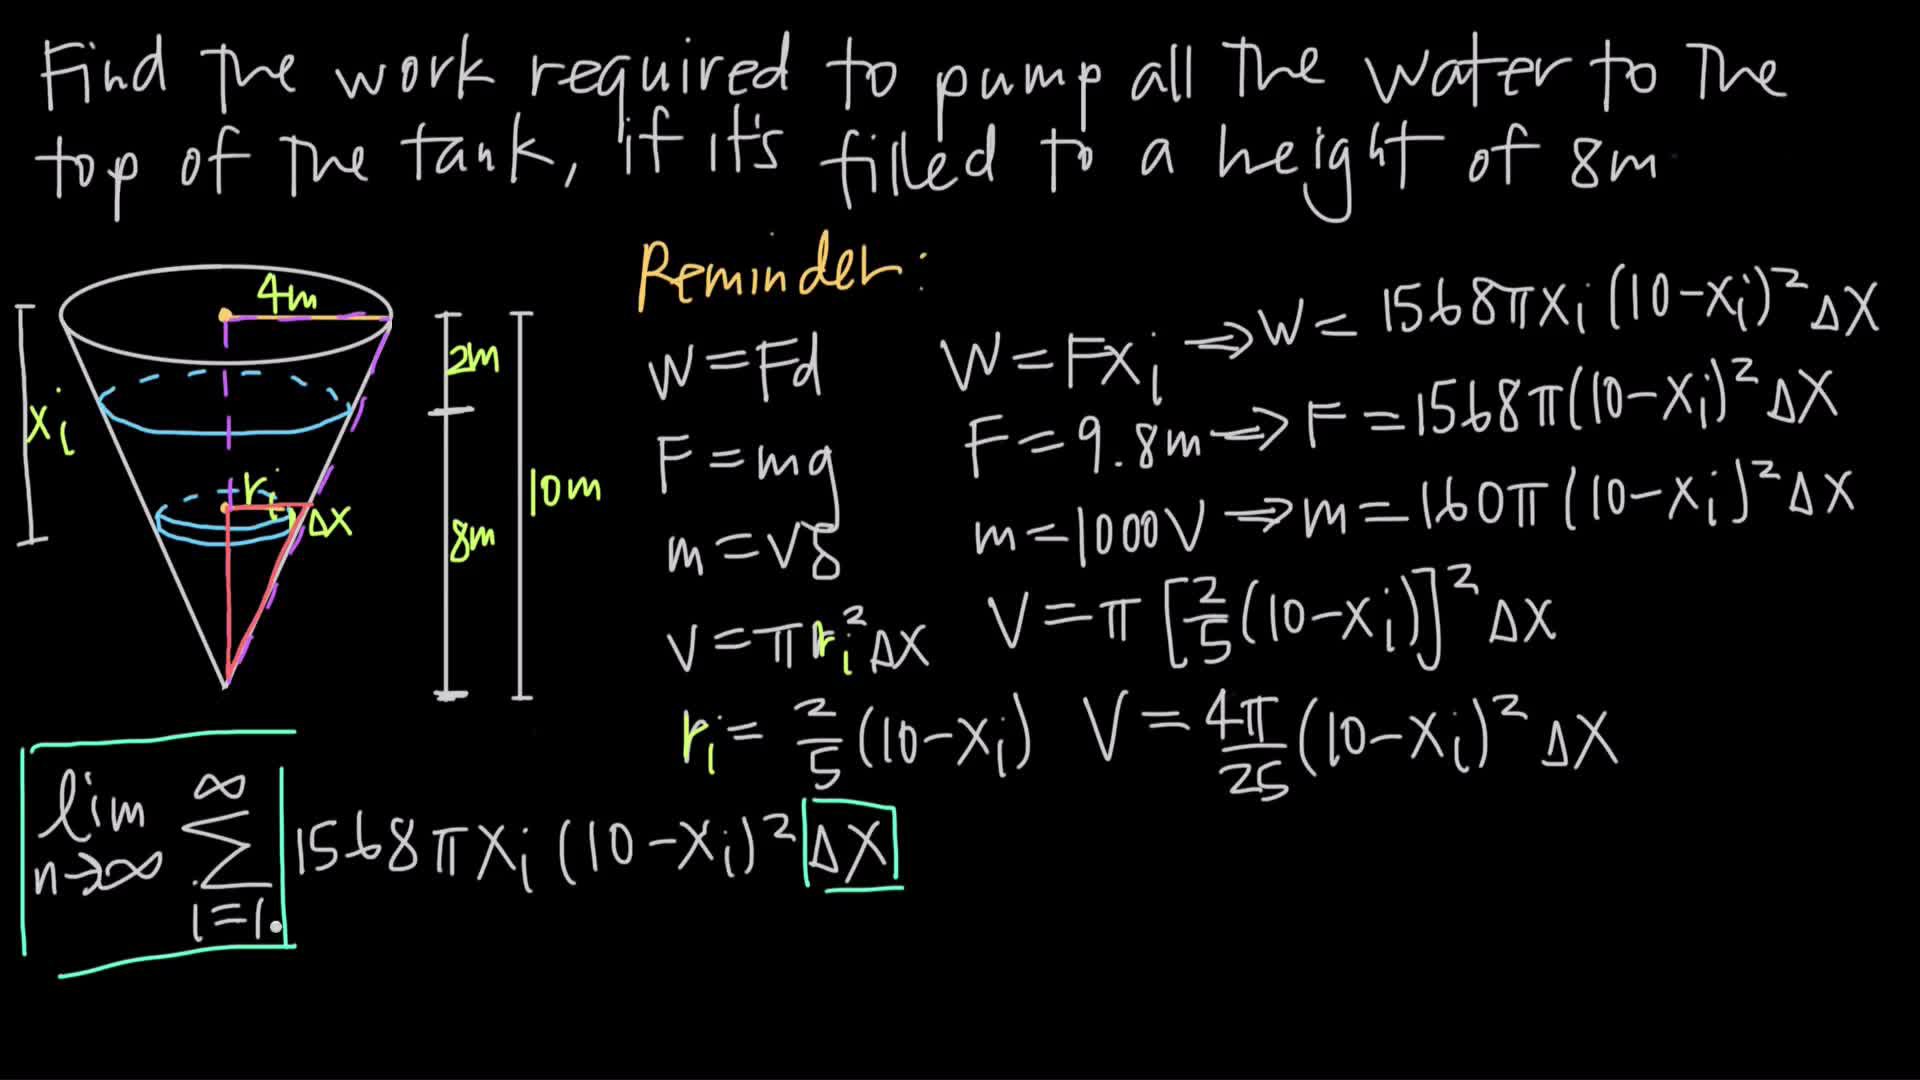 Find the work required to pump all the water to the
top of the tank, if it's filled to a height of 8m
Reminder:
4m
2m
xᵢ
rᵢ
Δx
8m
10m
W = Fd
W = Fxᵢ ⇒ W = 1568πxᵢ(10-xᵢ)²Δx
F = mg
F = 9.8m ⇒ F = 1568π(10-xᵢ)²Δx
m = Vδ
m = 1000V ⇒ m = 160π(10-xᵢ)²Δx
V = πrᵢ²Δx
V = π[2/5(10-xᵢ)]²Δx
rᵢ = 2/5(10-xᵢ)
V = 4π/25(10-xᵢ)²Δx
lim n→∞ ∑ i=1 ∞ 1568πxᵢ(10-xᵢ)²Δx